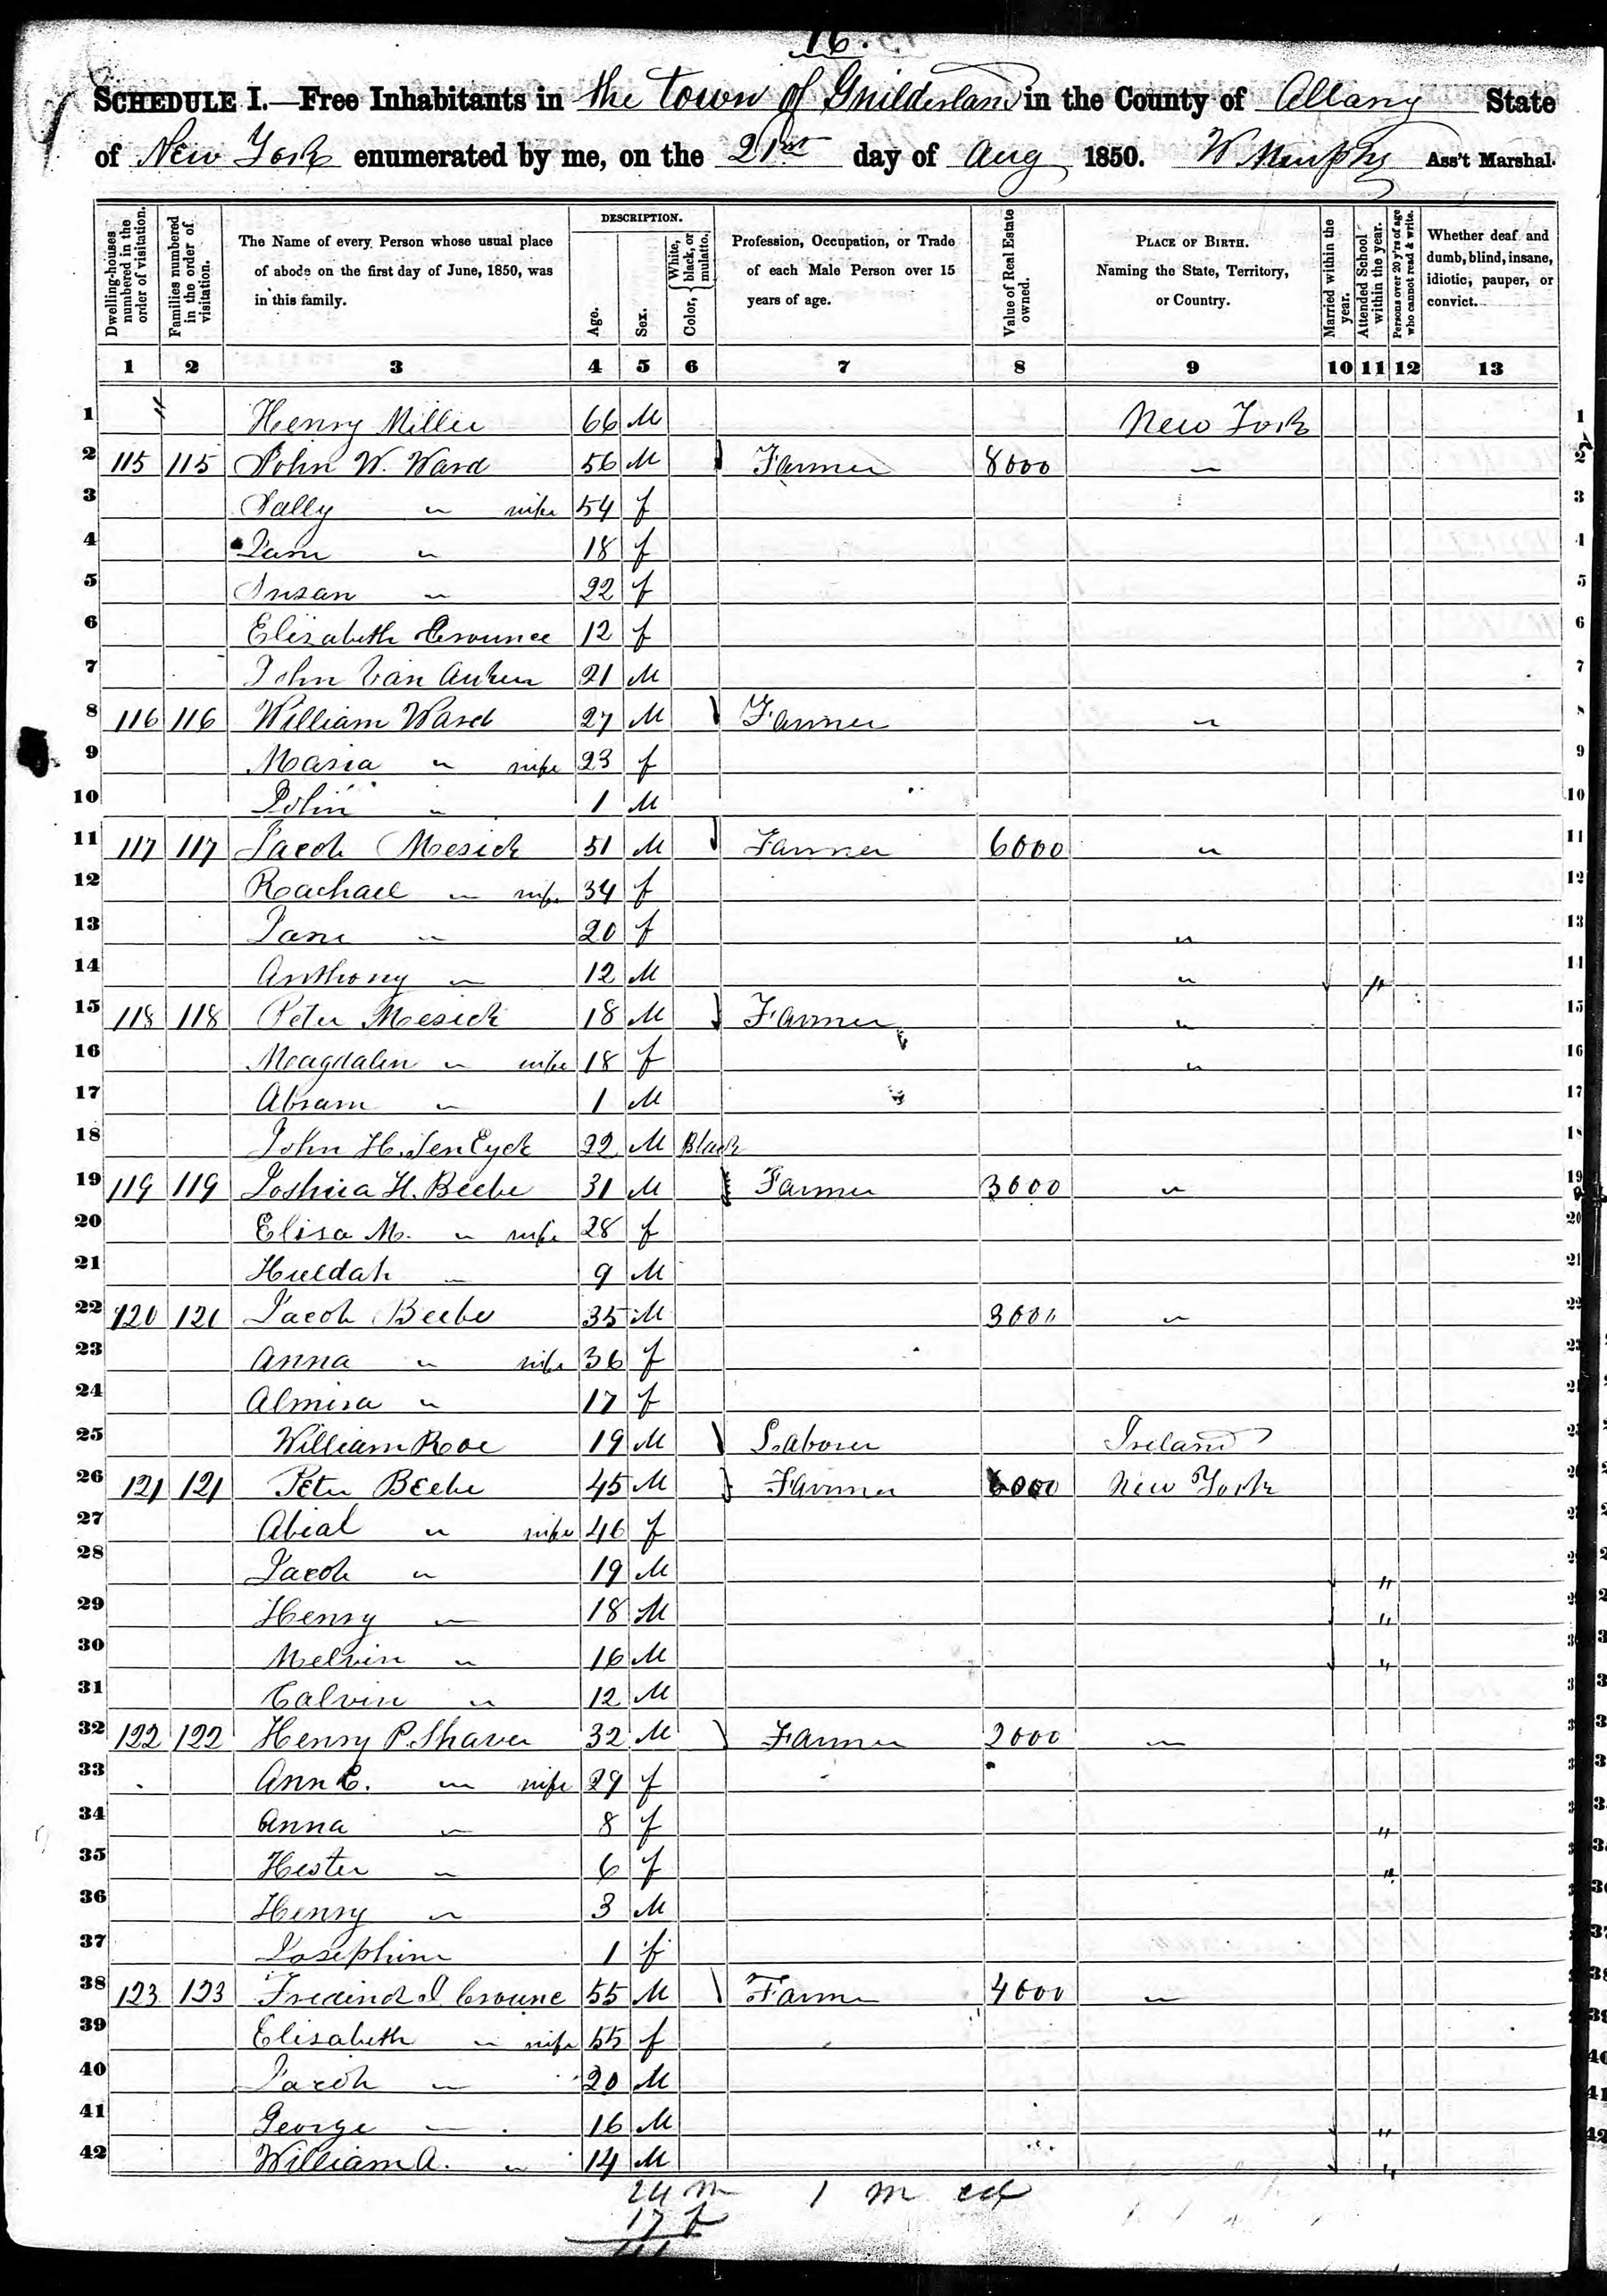 76.
SCHEDULE I.—Free Inhabitants in the Town of Guilderland in the County of Albany State
of New York enumerated by me, on the 21st day of Aug 1850. W Murphy Ass't Marshal.
Dwelling-houses numbered in the order of visitation. Families numbered in the order of visitation. The Name of every Person whose usual place of abode on the first day of June, 1850, was in this family. DESCRIPTION. Age. Sex. Color, { White, black, or mulatto. Profession, Occupation, or Trade of each Male Person over 15 years of age. Value of Real Estate owned. PLACE OF BIRTH. Naming the State, Territory, or Country. Married within the year. Attended School within the year. Persons over 20 y'rs of age who cannot read & write. Whether deaf and dumb, blind, insane, idiotic, pauper, or convict.
1 2 3 4 5 6 7 8 9 10 11 12 13
1 " Henry Miller 66 M New York 1
2 115 115 John W. Ward 56 M Farmer 8000 " 2
3 Sally " wife 54 f 3
4 Jane " 18 f 4
5 Susan " 22 f 5
6 Elizabeth Crounce 12 f 6
7 John Van Auken 21 M 7
8 116 116 William Ward 27 M Farmer " 8
9 Maria " wife 23 f 9
10 John " 1 M 10
11 117 117 Jacob Mesick 51 M Farmer 6000 " 11
12 Rachael " wife 34 f 12
13 Jane " 20 f " 13
14 Anthony " 12 M " " 14
15 118 118 Peter Mesick 18 M Farmer " 15
16 Magdalen " wife 18 f " 16
17 Abram " 1 M 17
18 John H. TenEyck 22 M Black 18
19 119 119 Joshua H. Beebe 31 M Farmer 3000 " 19
20 Elisa M. " wife 28 f 20
21 Huldah " 9 M 21
22 120 120 Jacob Beebe 35 M 3000 " 22
23 Anna " wife 36 f 23
24 Almira " 17 f
25 William Roe 19 M Laborer Ireland
26 121 121 Peter Beebe 45 M Farmer 6000 New York
27 Abial " wife 46 f
28 Jacob " 19 M "
29 Henry " 18 M "
30 Melvin " 16 M "
31 Calvin " 12 M
32 122 122 Henry P. Shaver 32 M Farmer 2000 "
33 Ann C. " wife 29 f
34 Anna " 8 f "
35 Hester " 6 f "
36 Henry " 3 M
37 Josephine 1 f
38 123 123 Frederick J Crounse 55 M Farmer 4000 "
39 Elisabeth " wife 55 f
40 Jacob " 20 M
41 George " 16 M "
42 William A. " 14 M "
24 m 1 m col
17 f
41